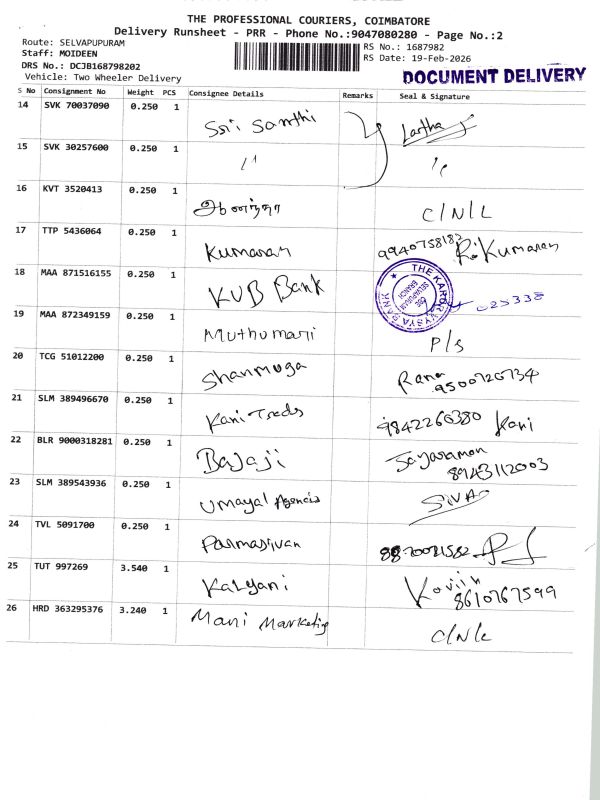 THE PROFESSIONAL COURIERS, COIMBATORE
Delivery Runsheet - PRR - Phone No.:9047080280 - Page No.:2
Route: SELVAPUPURAM
RS No.: 1687982
Staff: MOIDEEN
RS Date: 19-Feb-2026
DRS No.: DCJB168798202
Vehicle: Two Wheeler Delivery
DOCUMENT DELIVERY
S No Consignment No Weight PCS Consignee Details Remarks Seal & Signature
14 SVK 70037090 0.250 1 Sri Santhi Lartha
15 SVK 30257600 0.250 1 11 1,
16 KVT 3520413 0.250 1 ஆனந்தா C/N/L
17 TTP 5436064 0.250 1 Kumaran 9940758182 R. Kumaran
18 MAA 871516155 0.250 1 KVB Bank THE KARUR VYSYA BANK SELVAPURAM BRANCH CBE 025338
19 MAA 872349159 0.250 1 Muthumari P/s
20 TCG 51012200 0.250 1 Shanmuga Rana
9500720734
21 SLM 389496670 0.250 1 Kani Treds 9842266380 Kani
22 BLR 9000318281 0.250 1 Balaji Jayaraman
8943112003
23 SLM 389543936 0.250 1 Umayal Agencis SIVA
24 TVL 5091700 0.250 1 Parmasivan
25 TUT 997269 3.540 1 Kalyani
8610767599
26 HRD 363295376 3.240 1 Mani Marketig C/N/L